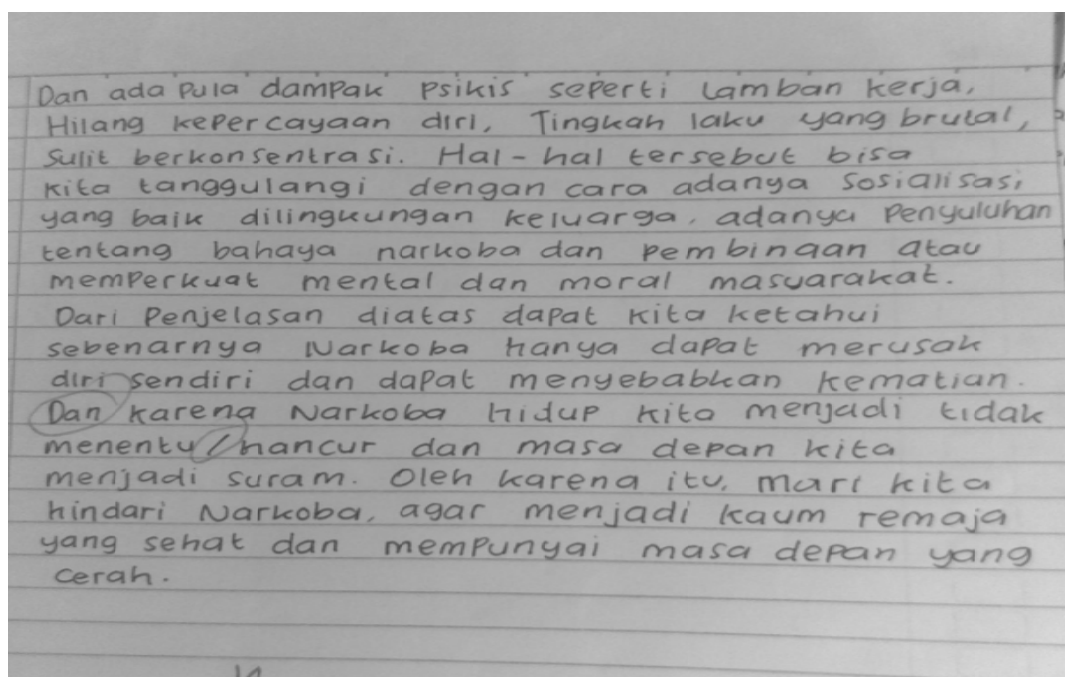 Dan ada pula dampak psikis seperti lamban kerja,
Hilang kepercayaan diri, Tingkah laku yang brutal,
sulit berkonsentrasi. Hal-hal tersebut bisa
kita tanggulangi dengan cara adanya sosialisasi
yang baik dilingkungan keluarga, adanya penyuluhan
tentang bahaya narkoba dan pembinaan atau
memperkuat mental dan moral masyarakat.
Dari Penjelasan diatas dapat kita ketahui
sebenarnya Narkoba hanya dapat merusak
diri sendiri dan dapat menyebabkan kematian.
Dan karena Narkoba hidup kita menjadi tidak
menentu/hancur dan masa depan kita
menjadi suram. Oleh karena itu, mari kita
hindari Narkoba, agar menjadi kaum remaja
yang sehat dan mempunyai masa depan yang
cerah.